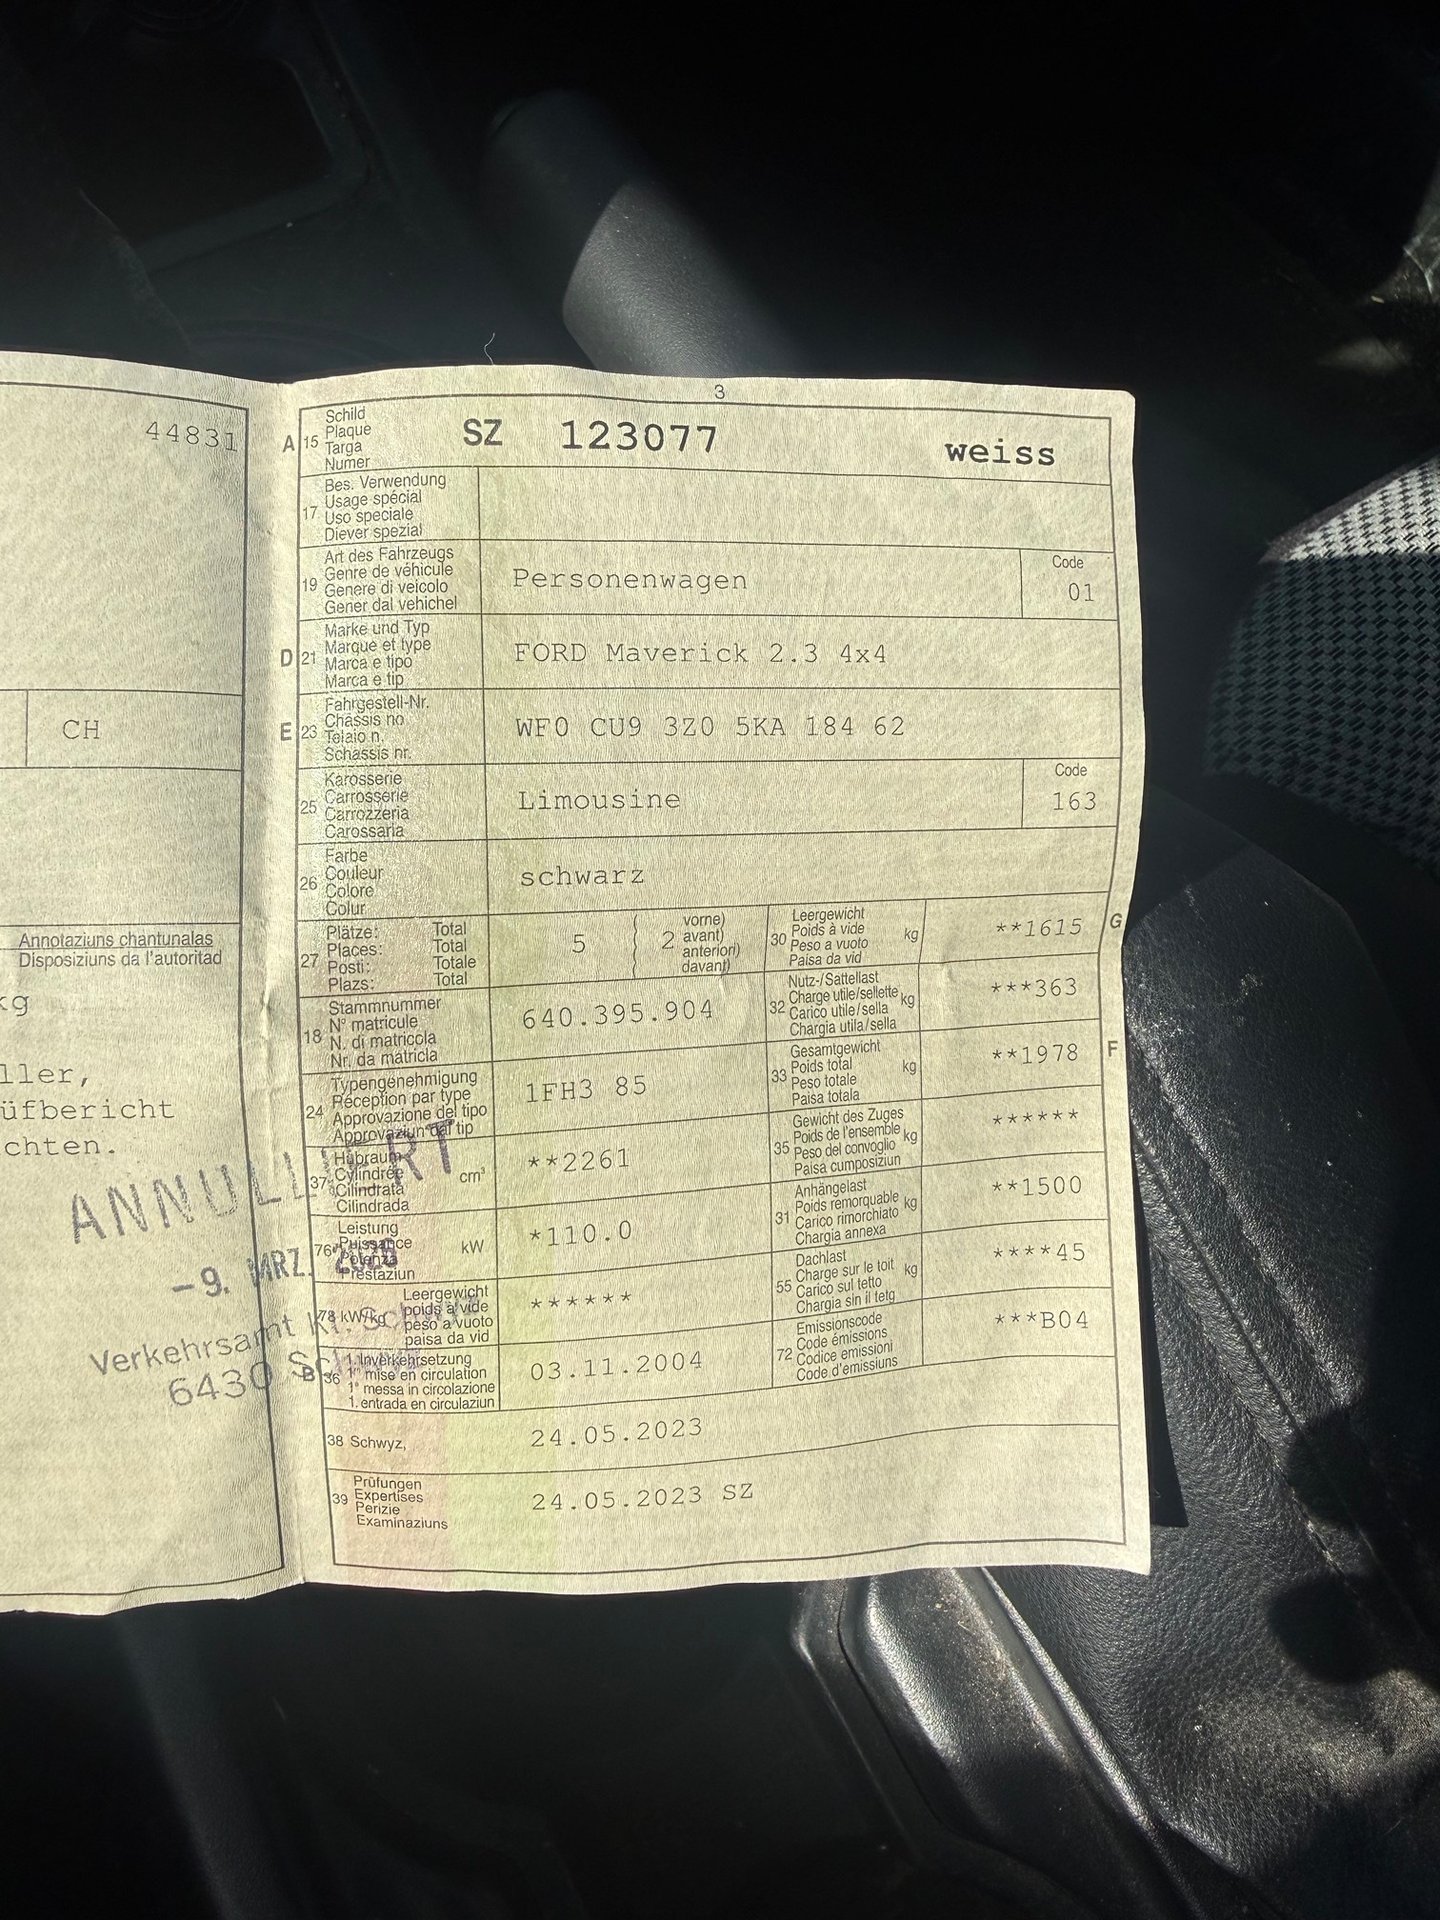 44831
CH
Annotaziuns chantunalas
Disposiziuns da l'autoritad
kg
ller,
üfbericht
chten.
ANNULLIERT
-9. MRZ.
Verkehrsamt Kt. Schwyz
6430 Schwyz
3
A 15 Schild
Plaque
Targa
Numer
SZ 123077 weiss
17 Bes. Verwendung
Usage spécial
Uso speciale
Diever spezial
19 Art des Fahrzeugs
Genre de véhicule
Genere di veicolo
Gener dal vehichel
Personenwagen
Code
01
D 21 Marke und Typ
Marque et type
Marca e tipo
Marca e tip
FORD Maverick 2.3 4x4
E 23 Fahrgestell-Nr.
Châssis no
Telaio n.
Schassis nr.
WF0 CU9 3Z0 5KA 184 62
25 Karosserie
Carrosserie
Carrozzeria
Carossaria
Limousine
Code
163
26 Farbe
Couleur
Colore
Colur
schwarz
27 Plätze: Total
Places: Total
Posti: Totale
Plazs: Total
5
2 vorne)
avant)
anteriori)
davant)
30 Leergewicht
Poids à vide
Peso a vuoto
Paisa da vid
kg
**1615 G
18 Stammnummer
N° matricule
N. di matricola
Nr. da matricla
640.395.904
32 Nutz-/Sattellast
Charge utile/sellette
Carico utile/sella
Chargia utila/sella
kg
***363
24 Typengenehmigung
Réception par type
Approvazione del tipo
Approvaziun dal tip
1FH3 85
33 Gesamtgewicht
Poids total
Peso totale
Paisa totala
kg
**1978 F
37 Hubraum
Cylindrée
Cilindrata
Cilindrada
cm³
**2261
35 Gewicht des Zuges
Poids de l'ensemble
Peso del convoglio
Paisa cumposiziun
kg
******
76 Leistung
Puissance
Potenza
Prestaziun
kW
*110.0
31 Anhängelast
Poids remorquable
Carico rimorchiato
Chargia annexa
kg
**1500
78 kW/kg
Leergewicht
poids à vide
peso a vuoto
paisa da vid
******
55 Dachlast
Charge sur le toit
Carico sul tetto
Chargia sin il tetg
kg
****45
B 36 1. Inverkehrsetzung
1re mise en circulation
1a messa in circolazione
1. entrada en circulaziun
03.11.2004
72 Emissionscode
Code émissions
Codice emissioni
Code d'emissiuns
***B04
38 Schwyz,
24.05.2023
39 Prüfungen
Expertises
Perizie
Examinaziuns
24.05.2023 SZ